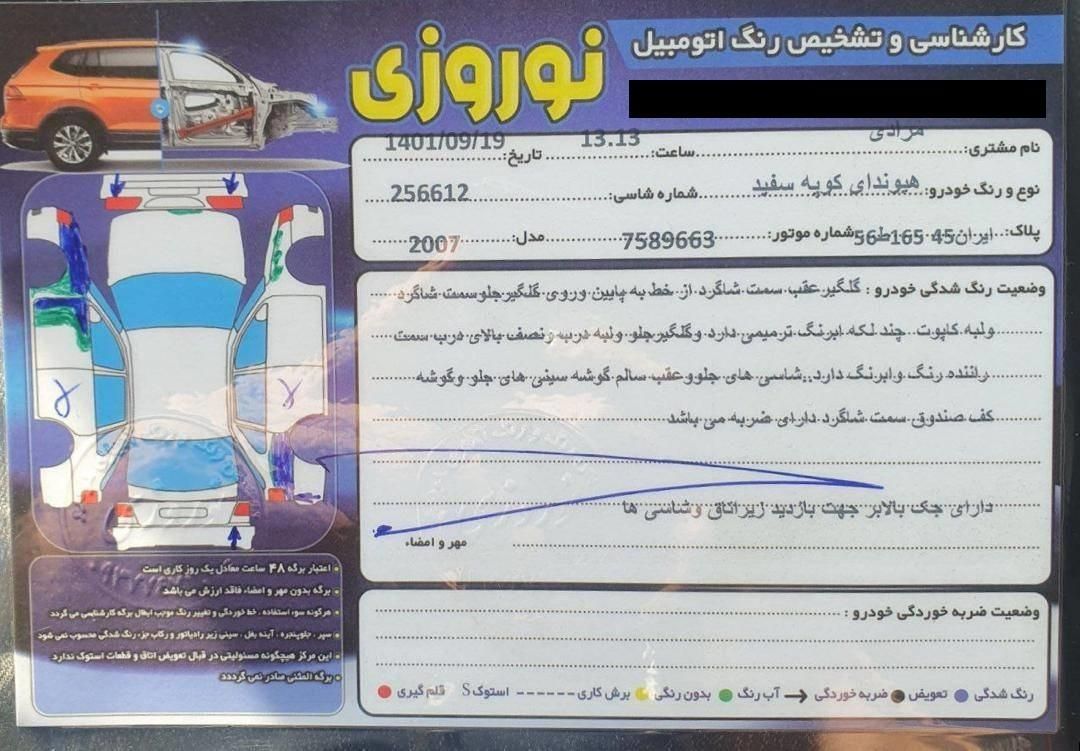 کارشناسی و تشخیص رنگ اتومبیل
نوروزی
نام مشتری: مرادی ساعت: 13.13 تاریخ: 1401/09/19
نوع و رنگ خودرو: هیوندای کوپه سفید شماره شاسی: 256612
پلاک: ایران 45 165ط56 شماره موتور: 7589663 مدل: 2007
وضعیت رنگ شدگی خودرو : گلگیر عقب سمت شاگرد از خط به پایین وروی گلگیر جلوسمت شاگرد
ولبه کاپوت چند لکه ابرنگ ترمیمی دارد وگلگیرجلو ولبه درب ونصف بالای درب سمت
راننده رنگ وابرنگ دارد,,شاسی های جلووعقب سالم گوشه سینی های جلو وگوشه
کف صندوق سمت شاگرد دارای ضربه می باشد
دارای جک بالابر جهت بازدید زیراتاق وشاسی ها
مهر و امضاء
اعتبار برگه ۴۸ ساعت معادل یک روز کاری است
برگه بدون مهر و امضاء فاقد ارزش می باشد
هرگونه سوء استفاده ، خط خوردگی و تغییر رنگ موجب ابطال برگه کارشناسی می گردد
سپر ، جلوپنجره ، آینه بغل ، سینی زیر رادیاتور و رکاب جزء رنگ شدگی محسوب نمی شود
این مرکز هیچگونه مسئولیتی در قبال تعویض اتاق و قطعات استوک ندارد
برگه المثنی صادر نمی گردد
وضعیت ضربه خوردگی خودرو :
رنگ شدگی تعویض ضربه خوردگی آب رنگ بدون رنگی برش کاری استوک S قلم گیری